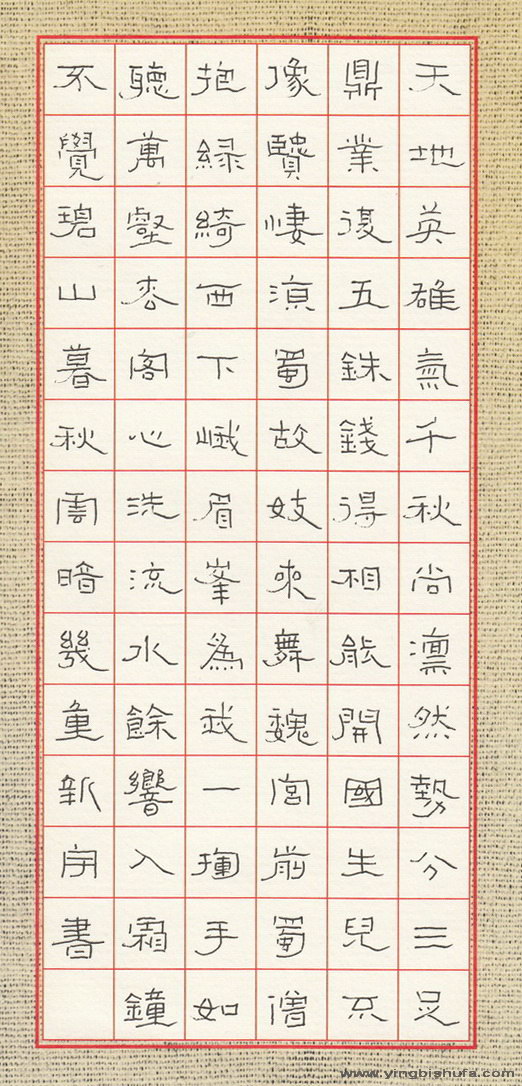 天地英雄氣千秋尚凜然勢分三足
鼎業復五銖錢得相能開國生兒不
像賢悽涼蜀故妓來舞魏宮前蜀僧
抱緑綺西下峨眉峯為我一揮手如
聽萬壑松閣心洗流水餘響入霜鐘
不覺碧山暮秋雲暗幾重新宇書
www.yingbishufa.com